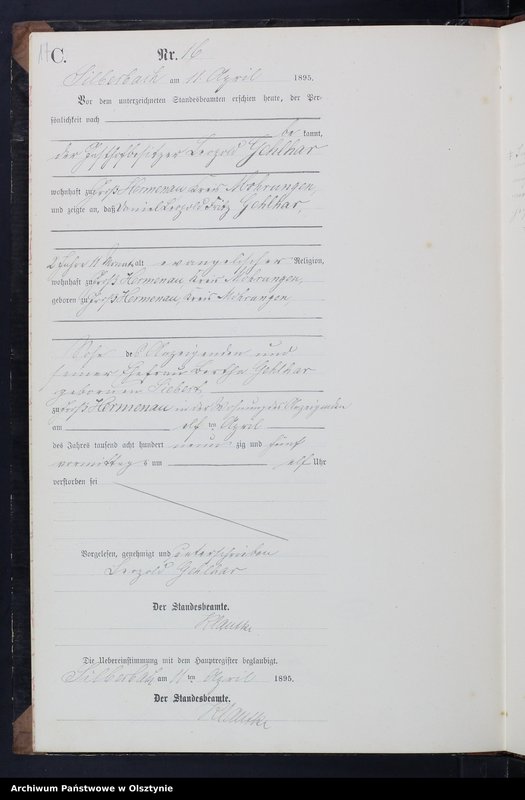 C.
Nr. 16
Silberbach am 11 April 1895.
Vor dem unterzeichneten Standesbeamten erschien heute, der Per-
sönlichkeit nach
be kannt,
der Gasthofbesitzer Leopold Gehlhar
wohnhaft zu Groß Hermenau Kreis Mohrungen
und zeigte an, daß Daniel Leopold Fritz Gehlhar,
2 Jahre 11 Monat alt evangelischer Religion,
wohnhaft zu Groß Hermenau Kreis Mohrungen,
geboren zu Groß Hermenau, Kreis Mohrungen
Sohn des Anzeigenden und
seiner Ehefrau Bertha Gehlhar
geborenen Siebert
zu Groß Hermenau in der Wohnung des Anzeigenden
am elf ten April
des Jahres tausend acht hundert neun zig und fünf
vormittag s um elf Uhr
verstorben sei
Vorgelesen, genehmigt und unterschrieben
Leopold Gehlhar
Der Standesbeamte.
Die Uebereinstimmung mit dem Hauptregister beglaubigt.
Silberbach am 11 ten April 1895.
Der Standesbeamte.
Archiwum Państwowe w Olsztynie